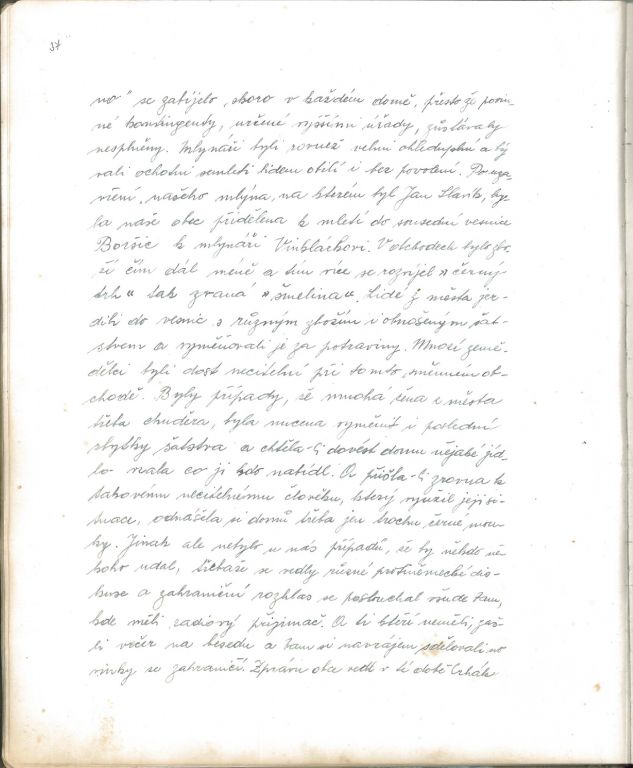 37
no" se zabíjelo, skoro v každém domě, přesto že povin-
né kontingenty, určené vyššími úřady, zůstávaly
nesplněny. Mlynáři byli rovněž velmi ohleduplní a bý-
vali ochotni semleti lidem obilí i bez povolení. Po uza-
vření "našeho mlýna, na kterém byl Jan Slavík, by-
la naše obec přidělena k mletí do sousední vesnice
Boršic k mlynáři Vinklárkovi. V obchodech bylo zbo-
ží čím dál méně a tím více se rozvíjel "černý
trh" tak zvaná "šmelina". Lidé z města jez-
dili do vesnic s různým zbožím i obnošeným šat-
stvem a vyměňovali je za potraviny. Mnozí země-
dělci byli dost necitelní při tomto směnném ob-
chodě. Byly případy, že mnohá žena z města
třeba chuděra, byla nucena vyměnit i poslední
zbytky šatstva a chtěla-li dovést domu nějaké jíd-
lo vzala co jí kdo nabídl. A přišla-li zrovna k
takovému necitelnému člověku, který využil její si-
tuace, odnášela si domů třeba jen trochu černé mou-
ky. Jinak ale nebylo u nás případů, že by někdo ně-
koho udal, třebaže se vedly různé protiněmecké dis-
kuse a zahraniční rozhlas se poslouchal všude tam,
kde měli radiový přijimač. A ti kteří neměli, zaš-
li večer na besedu a tam si navzájem sdělovali no-
vinky se zahraničí. Zprávu obce vedl v té době